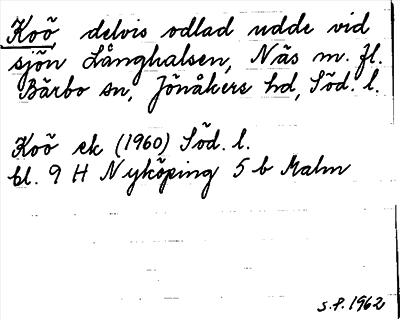 Koö delvis odlad udde vid
sjön Långhalsen, Näs m. fl.
Bärbo sn, Jönåkers hd, Söd. l.
Koö ek (1960) Söd. l.
bl. 9 H Nyköping 5 b Malm
S.P. 1962